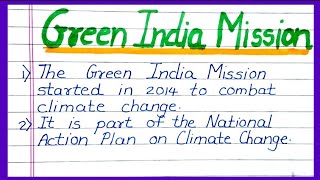 Green India Mission
1) The Green India Mission
started in 2014 to combat
climate change.
2) It is part of the National
Action Plan on Climate Change.